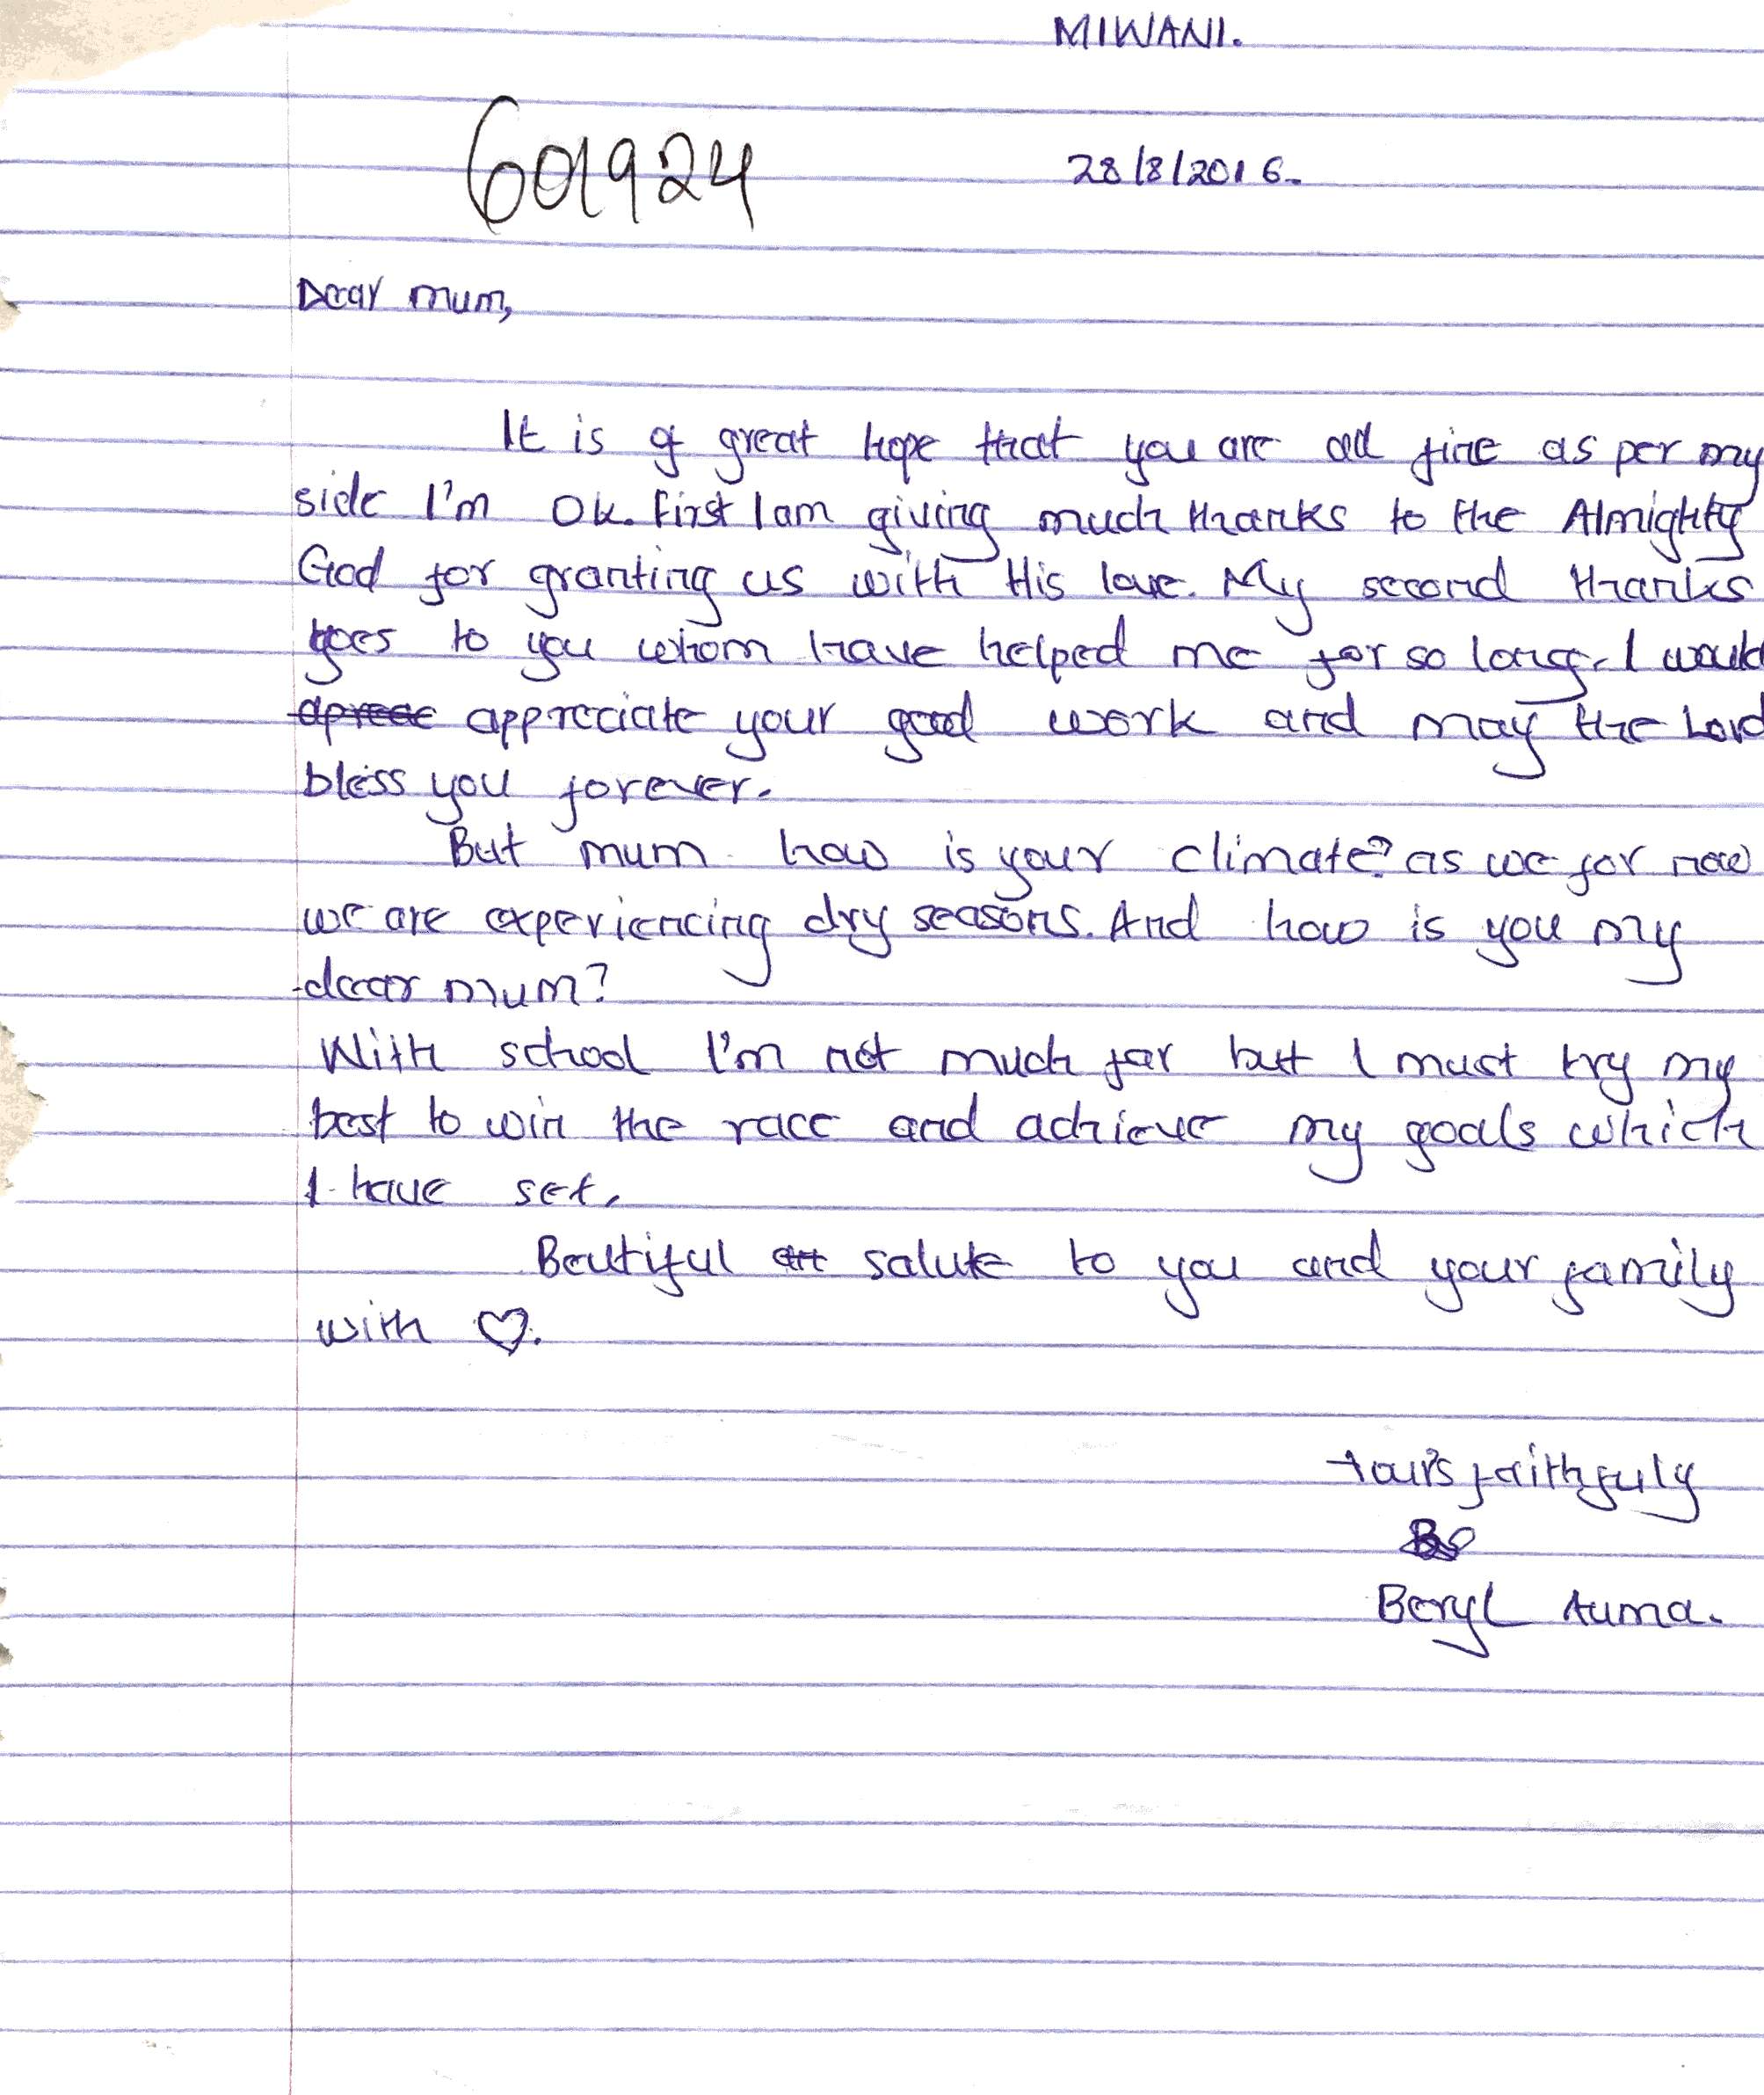 MIWANI.
601924
28/8/2016.
Dear mum,
It is of great hope that you are all fine as per my
side I'm Ok. First I am giving much thanks to the Almighty
God for granting us with His love. My second thanks
goes to you whom have helped me for so long. I would
apreac appreciate your good work and may the Lord
bless you forever.
But mum how is your climate? as we for now
we are experiencing dry seasons. And how is you my
dear mum?
With school I'm not much far but I must try my
best to win the race and achieve my goals which
I have set.
Beutiful salute to you and your family
with ♡.
Your's faithfuly
Beryl Auma.